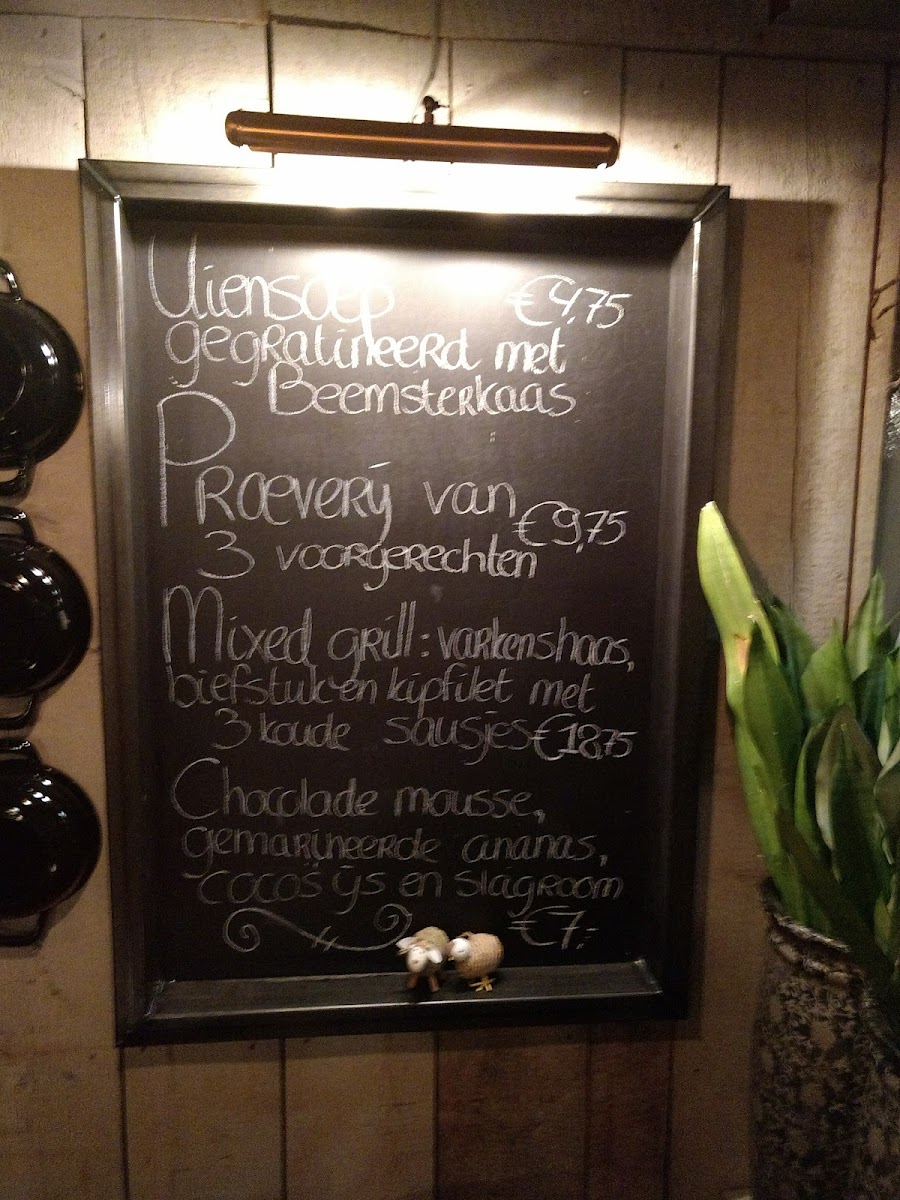 Uiensoep €4,75
gegratineerd met
Beemsterkaas
Proeverij van
€9,75
3 voorgerechten
Mixed grill: varkenshaas,
biefstuk en kipfilet met
3 koude sausjes €18,75
Chocolade mousse,
gemarineerde ananas,
cocos ijs en slagroom
€7,-